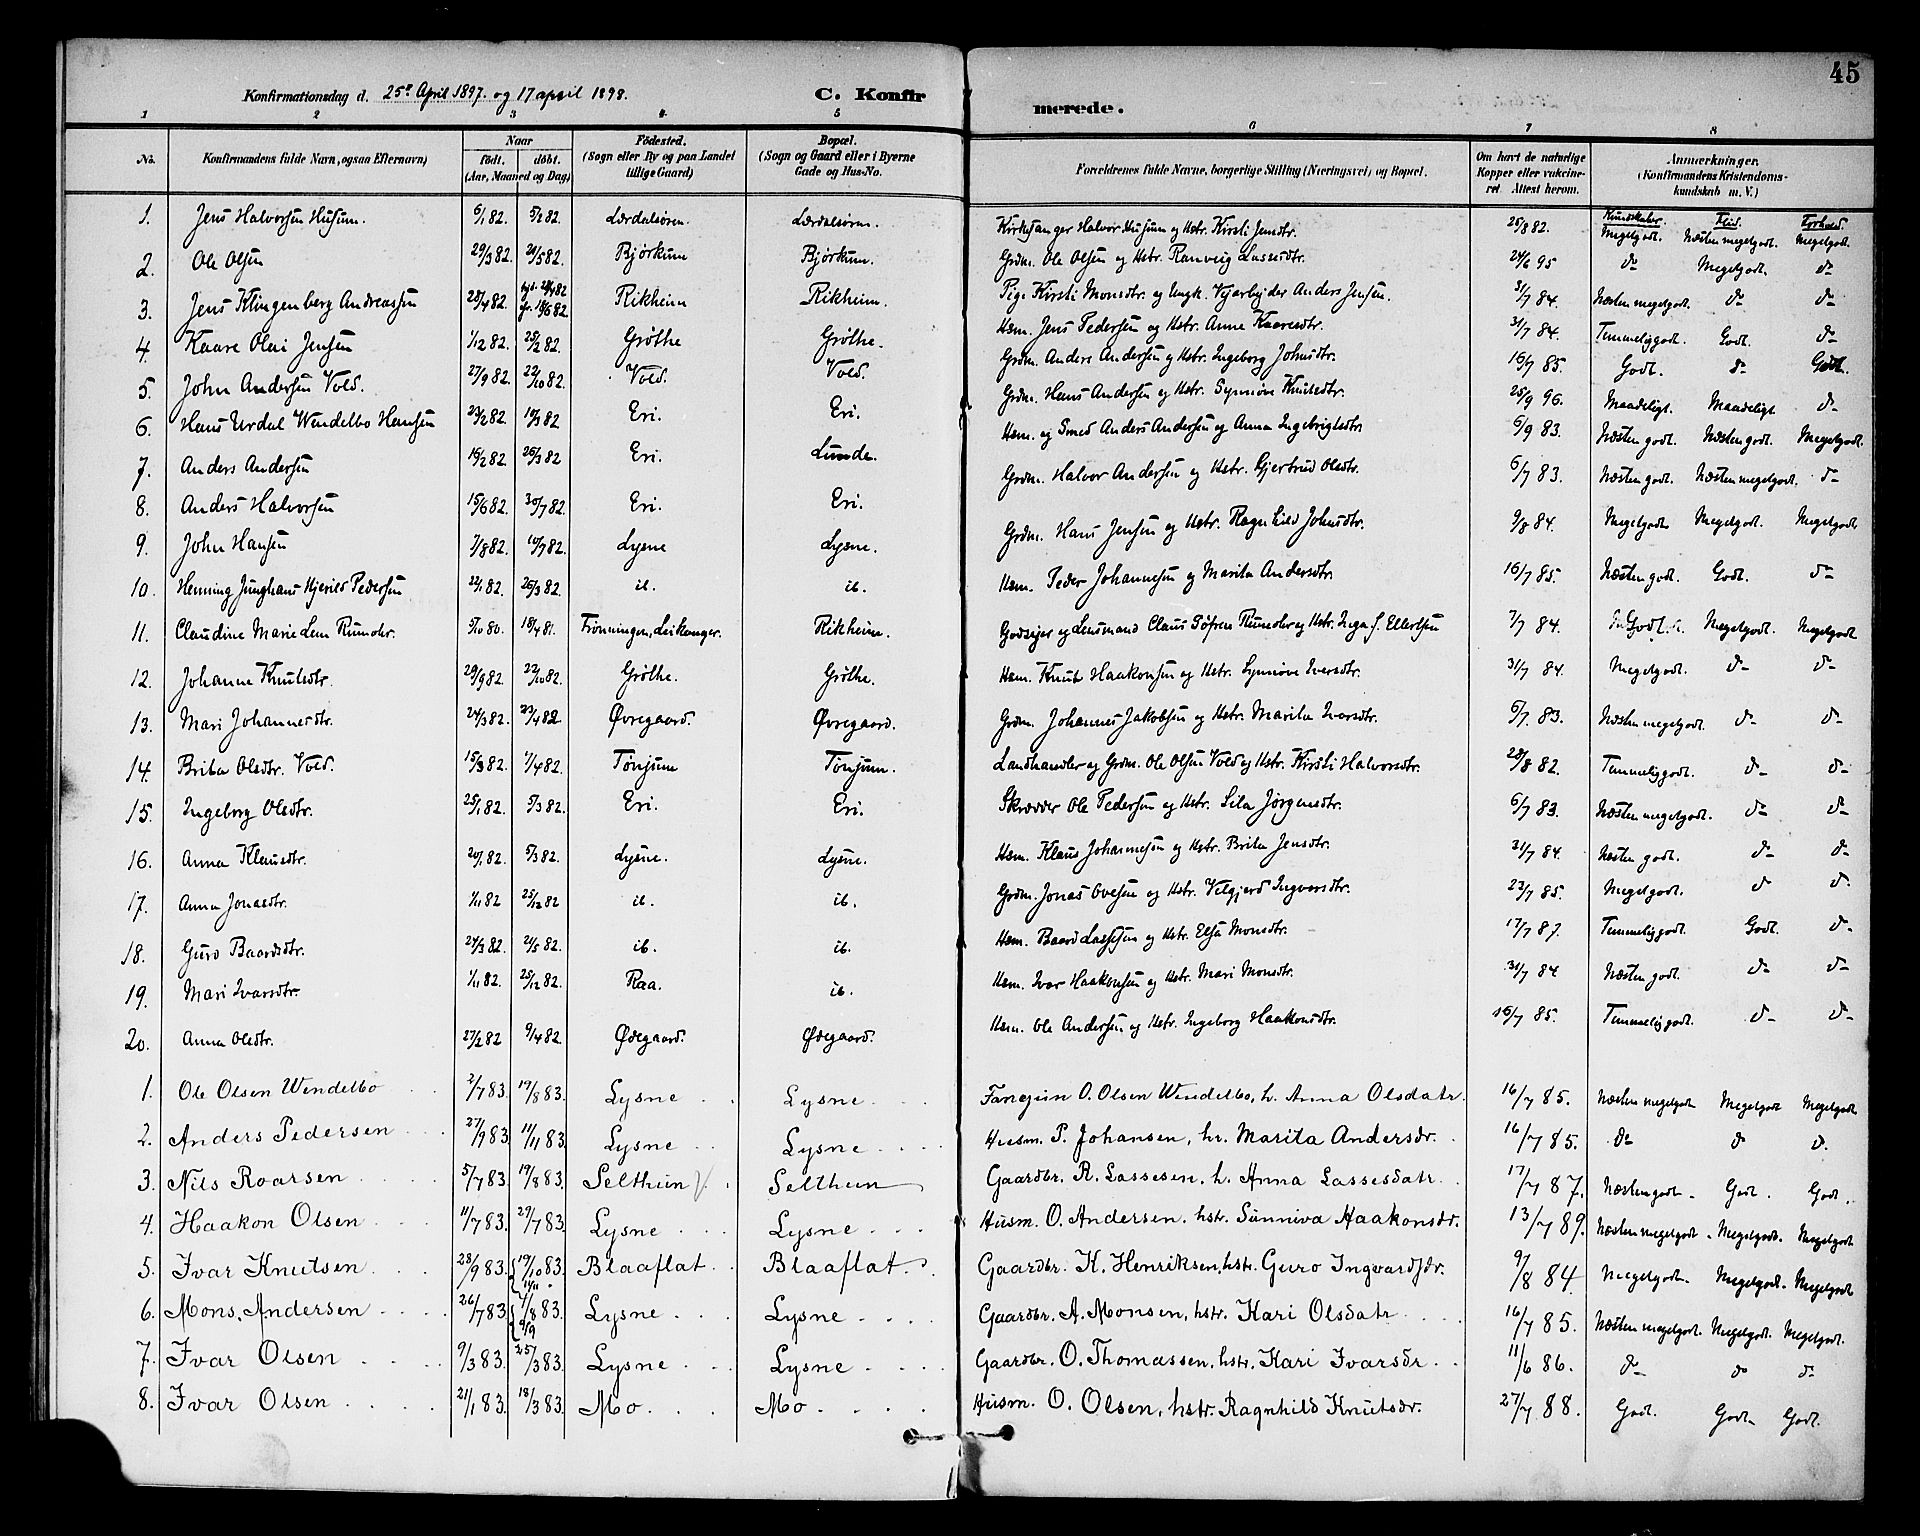 45
Konfirmationsdag d. 25de April 1897. og 17 april 1898. C. Konfirmerede.
1 2 3 4 5 6 7 8
No. Konfirmandens fulde Navn, ogsaa Efternavn) Naar født. døbt. (Aar, Maaned og Dag) Födested. (Sogn eller By og paa Landet tillige Gaard) Bopæl. (Sogn og Gaard eller i Byerne Gade og Hus-No. Forældrenes fulde Navne, borgerlige Stilling (Næringsvei) og Bopæl. Om havt de naturlige Kopper eller vakcineret. Attest herom. Anmærkninger. (Konfirmandens Kristendomskundskab m. V.)
Kundskaber. Flid. Forhold.
1. Jens Halvorsen Husum. 6/1 82. 5/2 82. Lærdalsøren. Lærdalsøren. Kirkesanger Halvor Husum og Hstr. Kirsti Jensdtr. 25/8 82. Megetgodt. Næsten megetgodt. Megetgodt
2. Ole Olsen 29/3 82. 21/5 82. Bjørkum Bjørkum. Grdm. Ole Olsen og Hstr. Ranveig Lassesdtr. 24/6 95 do Megetgodt. do
3. Jens Klingenberg Andreassen 28/4 82. 18/6 82. Rikheim Rikheim. Pige Kirsti Monsdtr. og Ungk. Vejarbejder Anders Jensen. 31/7 84. Næsten megetgodt. do do
4. Kaare Olai Jensen 1/12 82. 25/2 82. Grøthe Grøthe. Hsm. Jens Pedersen og Hstr. Anna Kaaresdtr. 31/7 84. Temmeliggodt. Godt. do
5. John Andersen Vold. 27/9 82. 22/10 82. Vold. Vold. Grdm. Anders Andersen og Hstr. Ingeborg Johnsdtr. 16/7 85. Godt. do Godt.
6. Hans Urdal Wendelbo Hansen 23/2 82. 19/3 82 Eri. Eri. Grdm. Hans Andersen og Hstr. Synnøve Knutsdtr. 25/9 96. Maadeligt. Maadeligt do
7. Anders Andersen 16/2 82. 26/3 82 Eri. Lunde. Hsm. og Smed Anders Andersen og Anna Ingebrigtsdtr 6/9 83. Næsten godt. Næsten godt. Megetgodt.
8. Anders Halvorsen 15/6 82. 30/7 82. Eri. Eri. Grdm. Halvor Andersen og Hstr. Gjertrud Olsdtr. 6/7 83. Næsten godt. Næsten megetgodt. do
9. John Hansen 7/8 82. 10/7 82. Lysne Lysne. Grdm. Hans Jensen og Hstr. Ragnhild Johnsdtr. 9/8 84. Megetgodt Megetgodt. Megetgodt
10. Henning Junghans Hjerild Pedersen 22/1 82. 26/3 82. ib. ib. Hsm. Peder Johannesen og Marita Andersdtr. 16/7 85. Næsten godt. Godt. do
11. Claudine Marie Lem Rumohr. 5/10 80. 18/4 81. Frønningen, Leikanger. Rikheim. Godsejer og Lensmand Claus Søfren Rumohr og Hstr. Inga f. Ellertsen 7/7 84. Godt. Megetgodt. Megetgodt
12. Johanne Knutsdtr. 29/9 82. 22/10 82. Grøthe. Grøthe. Hsm. Knut Haakonsen og Hstr. Synnøve Iversdtr. 31/7 84. Megetgodt. do do
13. Mari Johannesdtr. 24/3 82. 23/4 82 Øvregaard. Øvregaard. Grdm. Johannes Jakobsen og Hstr. Marita Ivarsdtr. 6/7 83. Næsten megetgodt. do do
14. Brita Olsdtr. Vold. 15/3 82. 7/4 82. Tønjum Tønjum. Landhandler og Grdm. Ole Olsen Vold og Hstr. Kirsti Halvorsdtr. 28/8 82. Temmeliggodt. do do
15. Ingeborg Olsdtr. 25/1 82. 5/3 82. Eri. Eri. Skrædder Ole Pedersen og Hstr. Sila Jørgensdtr. 6/7 83. Næsten megetgodt. do do
16. Anna Klausdtr. 20/1 82. 5/3 82. Lysne. Lysne. Hsm. Klaus Johannesen og Hstr. Brita Jensdtr. 31/7 84. Næsten godt. do do
17. Anna Jonasdtr. 1/11 82 25/12 82 ib. ib. Grdm. Jonas Ovesen og Hstr. Vilgjerd Ingvarsdtr. 23/7 85. Megetgodt. do do
18. Guro Baardsdtr. 24/3 82. 21/5 82. ib. ib. Hsm. Baard Lassesen og Hstr. Elsa Monsdtr. 17/7 87. Temmeliggodt. Godt. do
19. Mari Ivarsdtr. 1/11 82. 25/12 82. Raa. ib. Hsm. Ivar Haakonsen og Hstr. Mari Monsdtr. 31/7 84 Næsten godt. do do
20. Anna Olsdtr. 27/2 82 9/4 82. Ødegaard. Ødegaard. Hsm. Ole Andersen og Hstr. Ingeborg Haakonsdtr. 16/7 85. Temmeliggodt. do do
1. Ole Olsen Wendelbo 2/7 83. 19/8 83. Lysne Lysne O. Olsen Wendelbo, h. Anna Olsdatr. 16/7 85. Næsten megetgodt Megetgodt Megetgodt
2. Anders Pedersen 27/9 83. 11/11 83. Lysne Lysne Husm. P. Johansen, hr. Marita Andersdr. 16/7 85. do do do
3. Nils Roarsen 5/7 83. 19/8 83. Selthun Selthun Gaardbr. R. Lassesen, h. Anna Lassesdatr. 17/7 87. Næsten godt. Godt. Godt.
4. Haakon Olsen 11/7 83. 29/7 83. Lysne Lysne Husm. O. Andersen, hstr. Sunniva Haakonsdr. 13/7 89. Næsten megetgodt. Megetgodt. Megetgodt
5. Ivar Knutsen 23/9 83. 19/10 83. Blaaflat Blaaflat. Gaardbr. K. Henriksen, hstr. Guro Ingvardsdr. 9/8 84. Megetgodt. Megetgodt. Megetgodt
6. Mons. Andersen 26/7 83. 7/8 83. 9/9 Lysne Lysne Gaardbr. A. Monsen, hstr. Kari Olsdatr 16/7 85. Næsten megetgodt. Megetgodt. Megetgodt.
7. Ivar Olsen 9/3 83. 25/3 83. Lysne Lysne Gaardbr. O. Thomassen, hstr. Kari Ivarsdr 11/6 86. do do do
8. Ivar Olsen 21/1 83. 18/3 83. Mo. Mo Husm. O. Olsen, hstr. Ragnhild Knutsdr. 27/7 88. Godt. Godt. Godt.